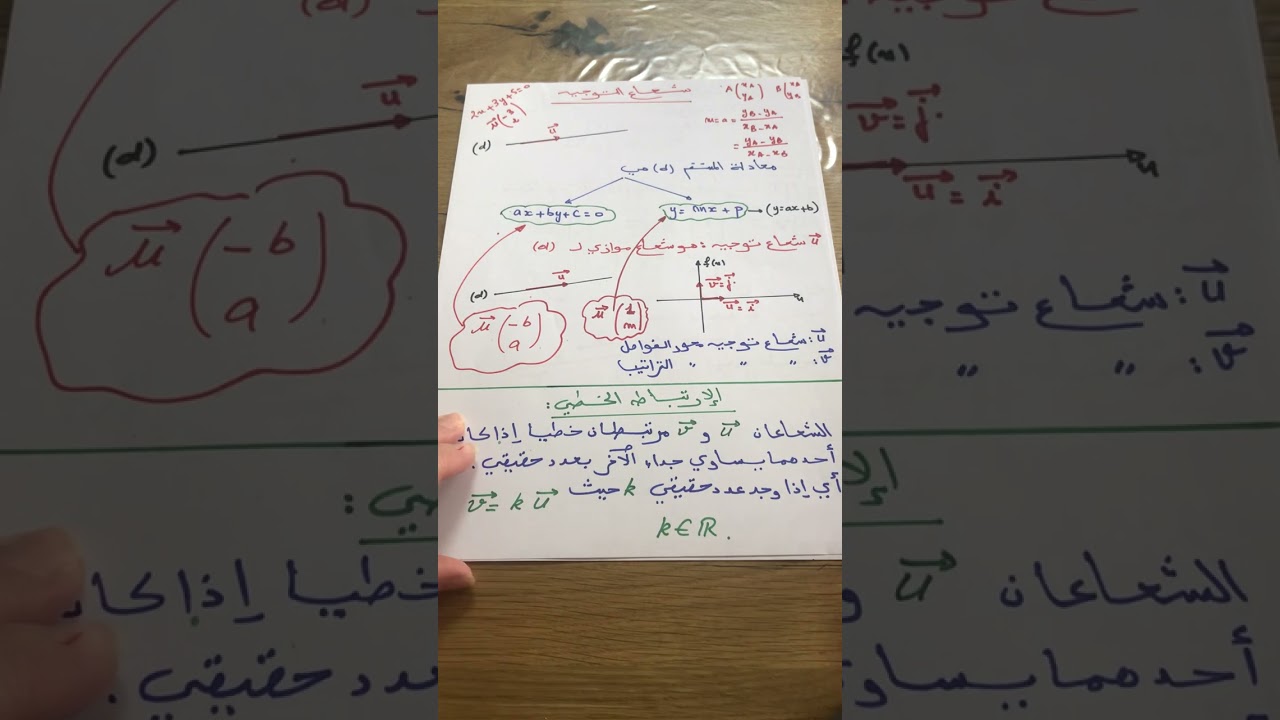 شعاع التوجيه
A(xA yA) B(xA yB
2x+3y+5=0
u⃗(-3 2)
u⃗
(d)
m=a= yB-yA / xB-xA
= yA-yB / xA-xB
معادلة المستقيم (d) هي
ax+by+c=0
y=mx+p → (y=ax+b)
u⃗ شعاع توجيه : هو شعاع موازي لـ (d)
(d) u⃗
u⃗(-b a)
u⃗(1 m)
f(x)
v⃗=j⃗
u⃗=i⃗
x
u⃗: شعاع توجيه محور الفواصل
v⃗: " " " التراتيب
الإرتباط الخطي:
الشعاعان u⃗ و v⃗ مرتبطان خطيا إذا كان
أحدهما يساوي جداء الآخر بعدد حقيقي.
أي إذا وجد عدد حقيقي k حيث v⃗= k u⃗
k∈ℝ.